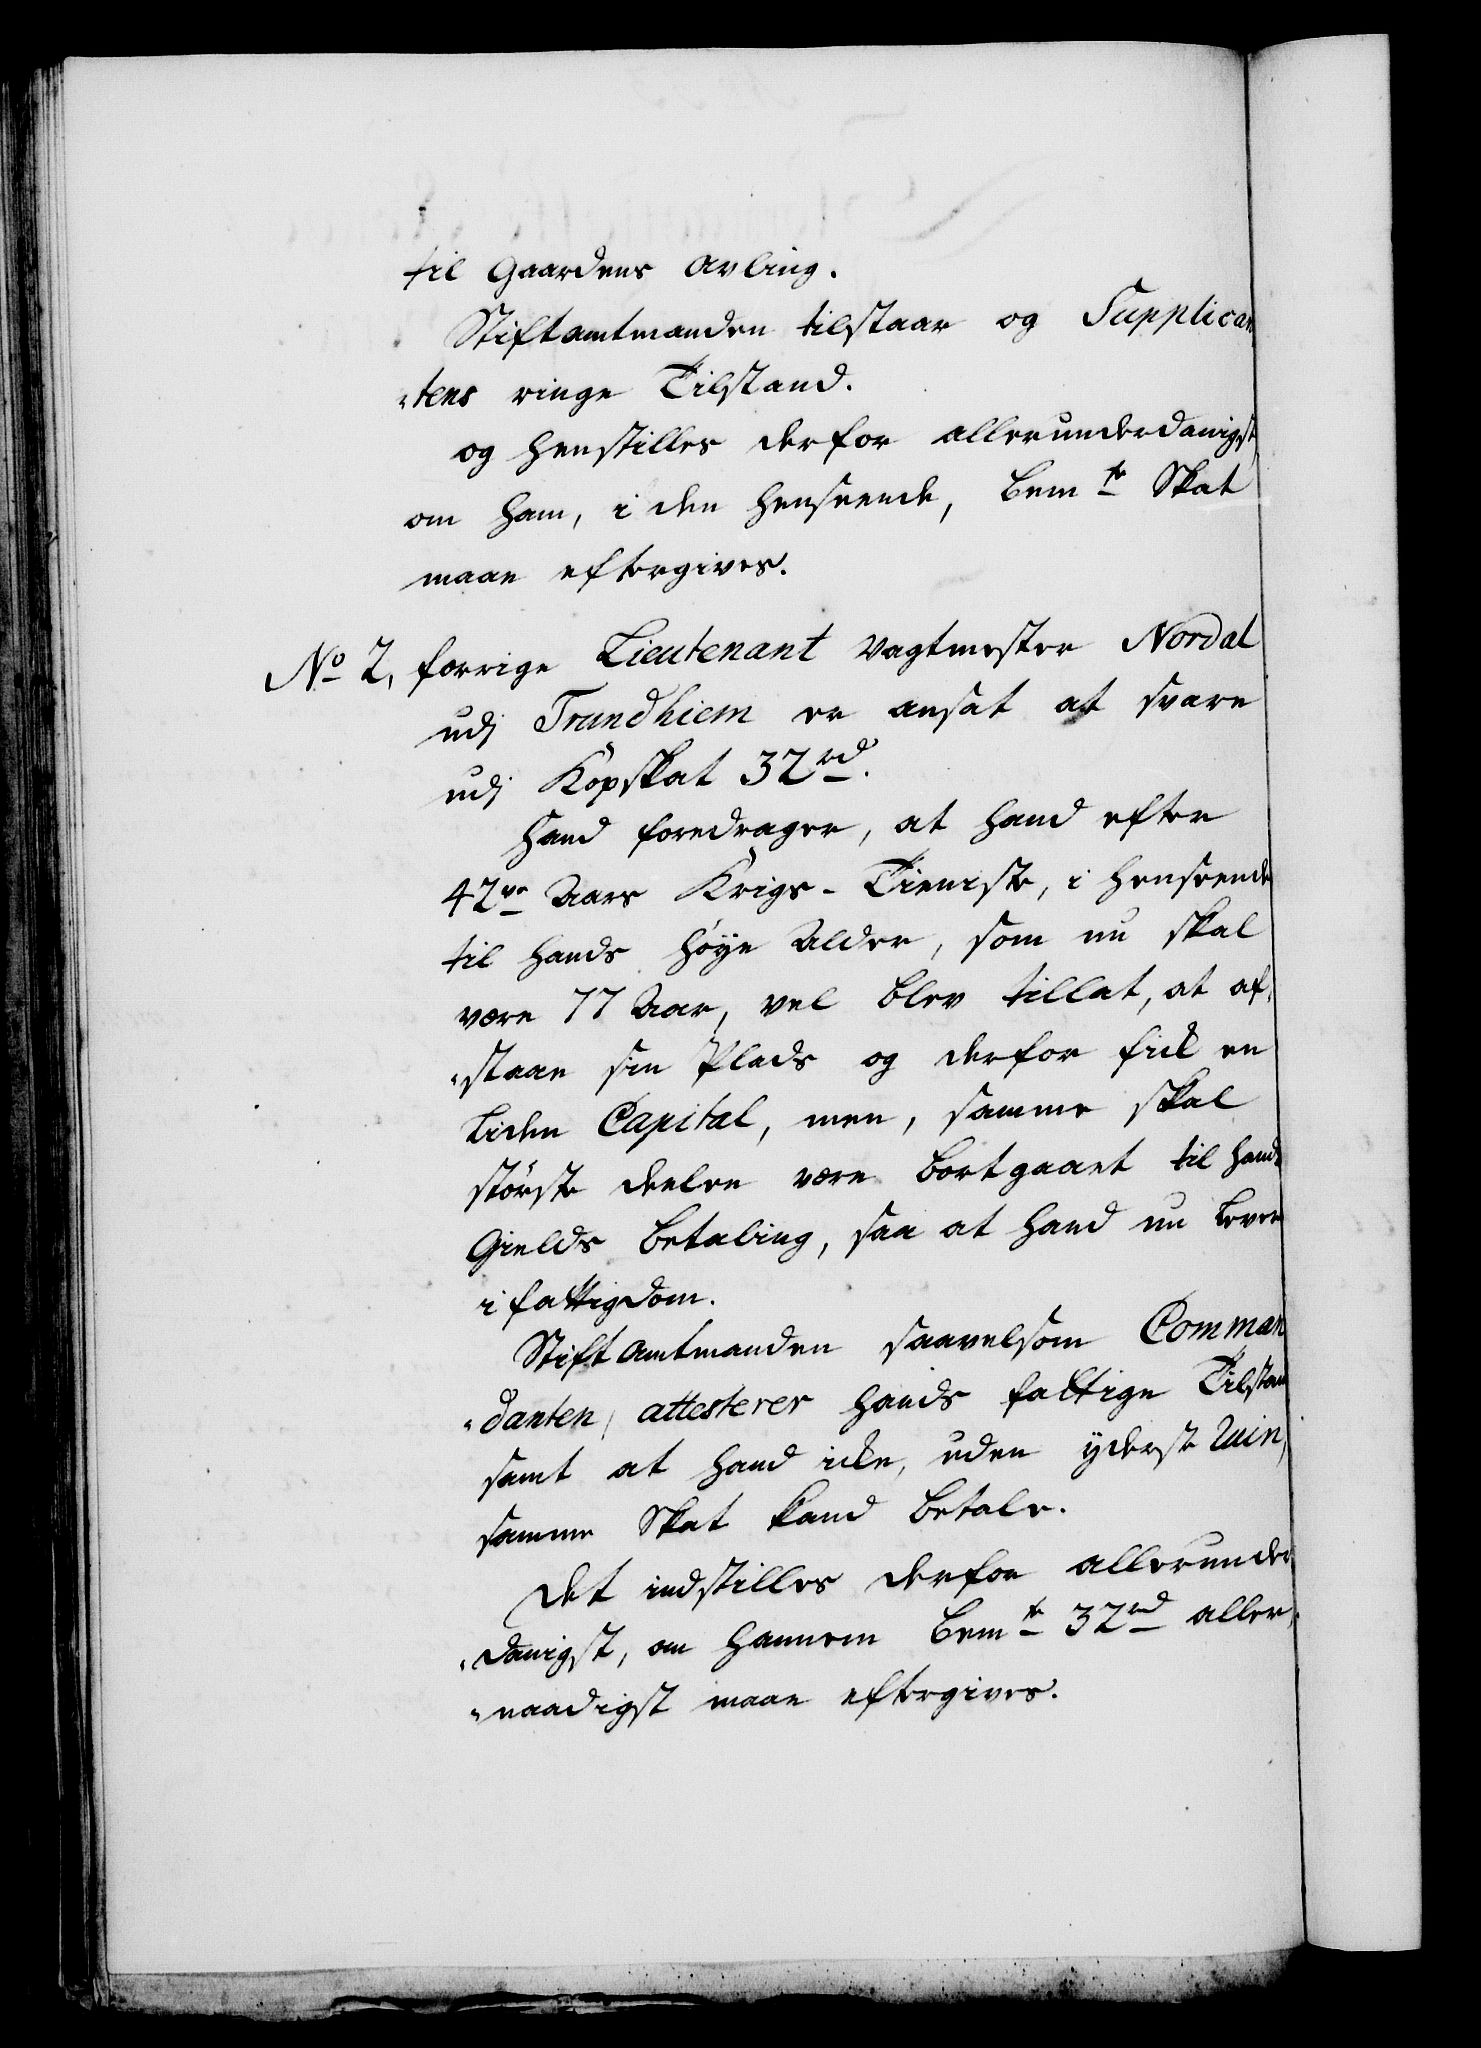 til Gaardens Avling.
Stiftamtmanden tilstaar og Supplican
„tens ringe Tilstand.
og henstilles derfor allerunderdanigst,
om ham, i den henseende, bem.te Skat
maae eftergives.
No 2, forrige Lieutenant Vagtmester Nordal
udj Trundhiem er ansat at svare
udj Kopskat 32 rd.
Hand foredrager, at hand efter
42ve Aars Krigs-Tieniste, i henseende
til hands høye Alder, som nu skal
være 77 Aar, vel blev tillat, at af„
„staae sin Plads og derfor fick en
liden Capital, men, samme skal
største deelen være bortgaaet til hands
Gields betaling, saa at hand nu lever
i fattigdom.
Stift Amtmanden saavelsom Comman
„danten, attesterer hands fattige Tilstand
samt at hand icke, uden yderste Ruin,
samme Skat kand betale.
Det indstilles derfor allerunder„
„danigst, om hannem bem.te 32 rd aller„
„naadigst maae eftergives.